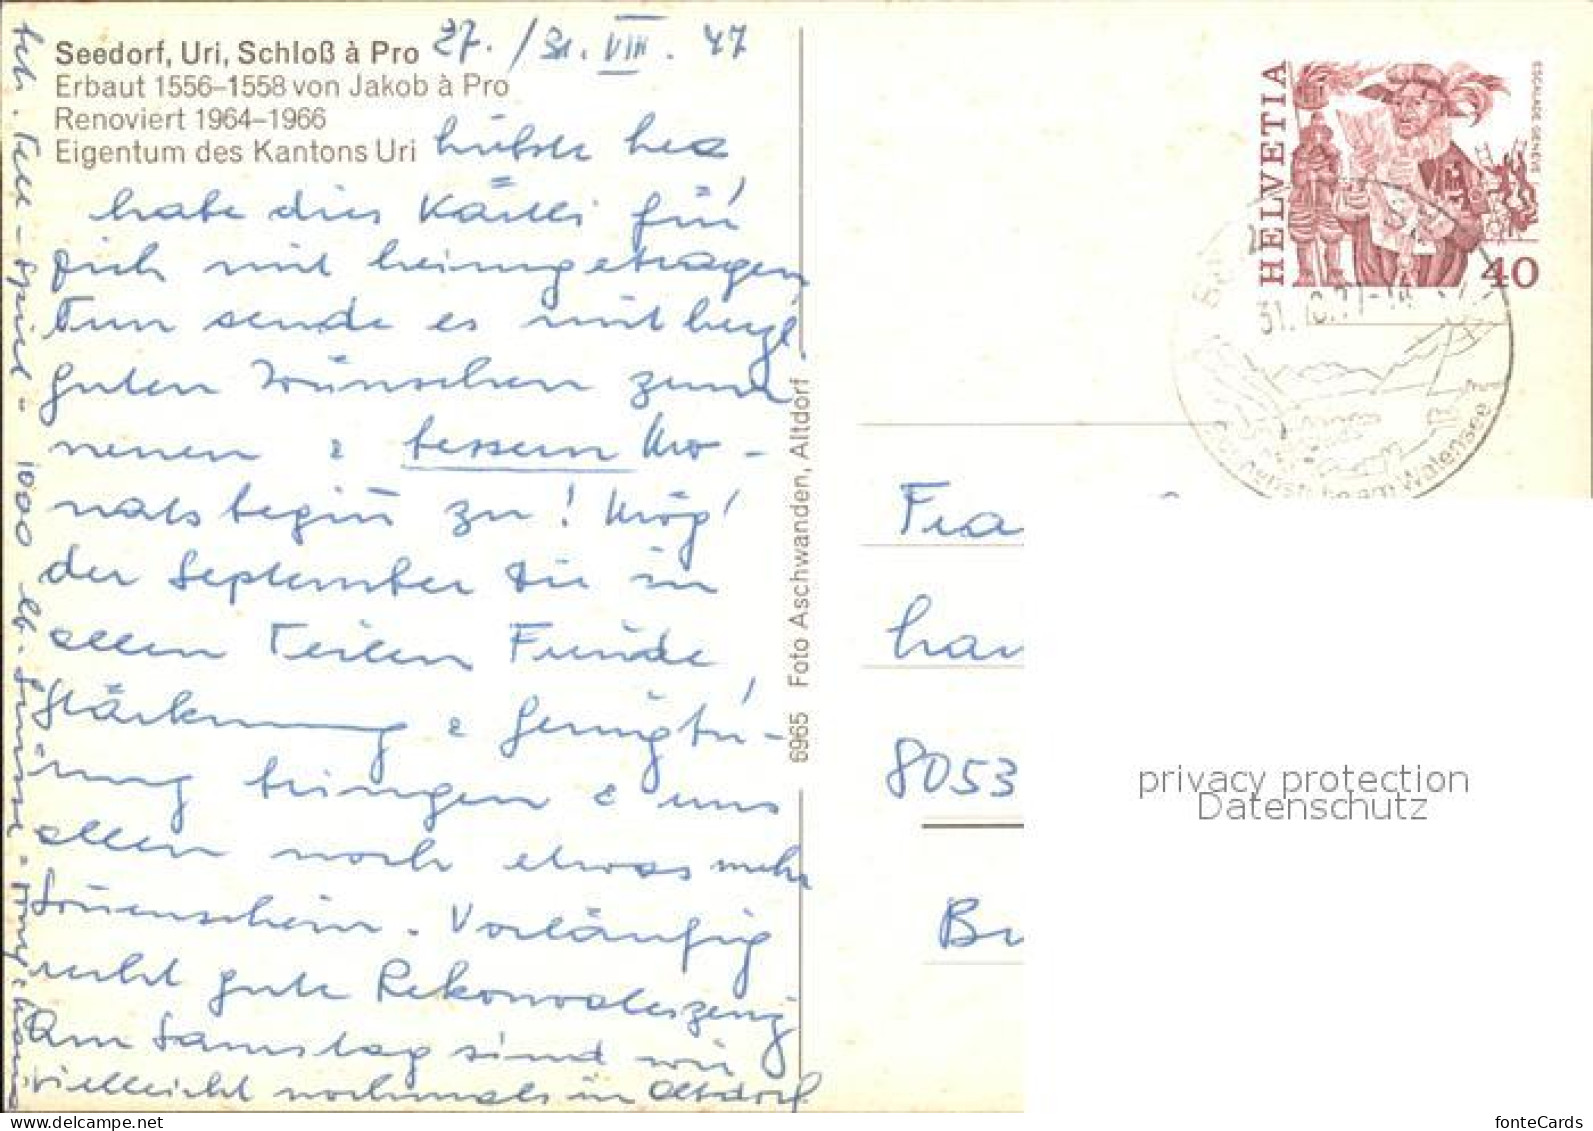 Seedorf, Uri, Schloß à Pro
27. / 31. VIII. 77
Erbaut 1556–1558 von Jakob à Pro
Renoviert 1964–1966
Eigentum des Kantons Uri
habe dies Kärtli für
mit heimgetragen
Nun sende es mit herzl.
guten Wünschen zum
neuen & bessern Mo-
natsbeginn zu! Mög'
der September Dir in
allen Teilen Freude,
Stärkung & Genugtu-
ung bringen & uns
allen noch etwas mehr
Sonnenschein. Vorläufig
recht gute Rekonvaleszenz
Am Samstag sind wir
vielleicht nochmals in Altdorf
Tell-Spiel = 1000 lb.
6965 Foto Aschwanden, Altdorf
HELVETIA
ESCALADE GENEVE
40
31.
am Walensee
Fra
han
8053
privacy protection
Datenschutz
fonteCards
www.delcampe.net